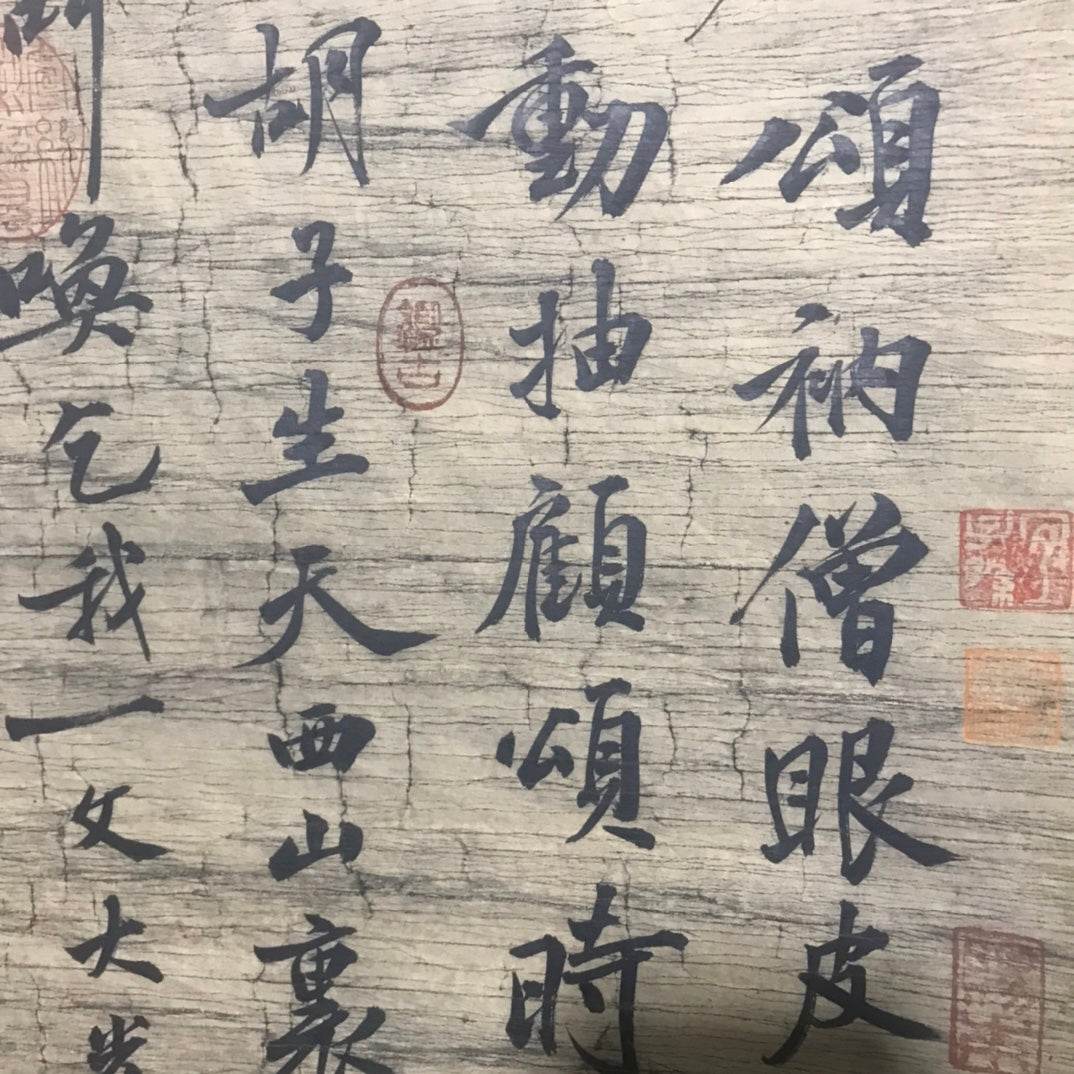 頌衲僧眼皮
動抽顧頌時
胡子生天西山裏
喚乞我一文大光